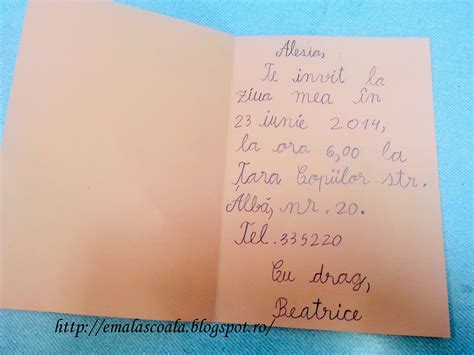 Alesia,
Te invit la
ziua mea în
23 iunie 2014,
la ora 6,00 la
Țara Copiilor str.
Albă, nr. 20.
Tel. 335220
Cu drag,
Beatrice
http://emalascoala.blogspot.ro/